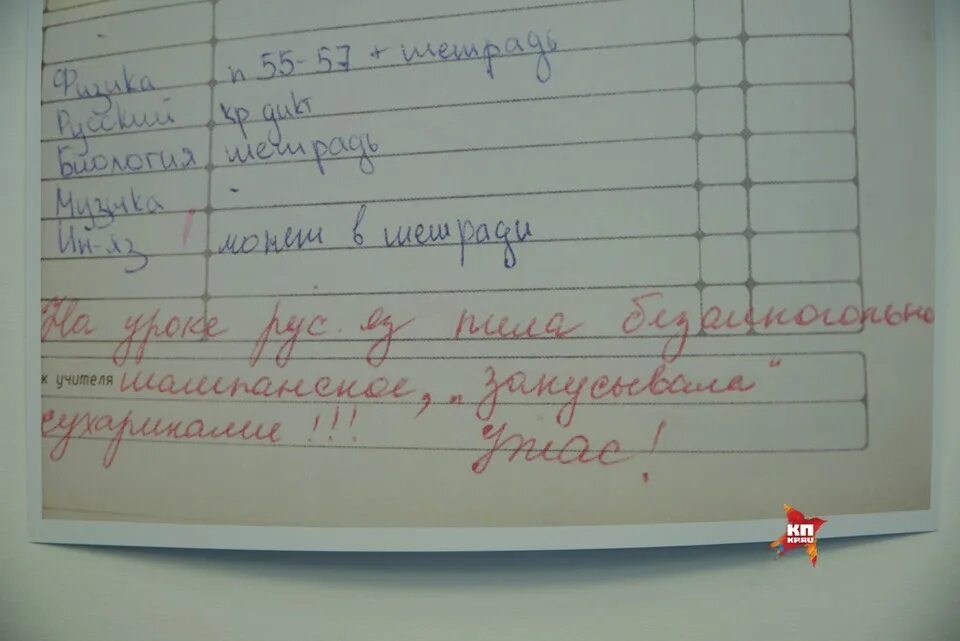 Физика п 55-57 + тетрадь
Русский кр дикт
Биология тетрадь
Музыка -
Ин-яз может в тетради
На уроке рус. яз пила безалкогольно
к учителя шампанское, „закусывала"
сухариками!!! Ужас!
КП
KP.RU